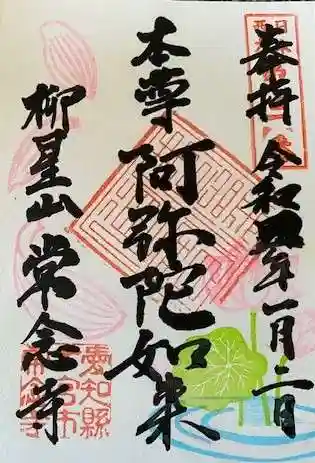 奉拝 令和五年一月二日
本尊 阿弥陀如来
柳星山 常念寺
愛知縣